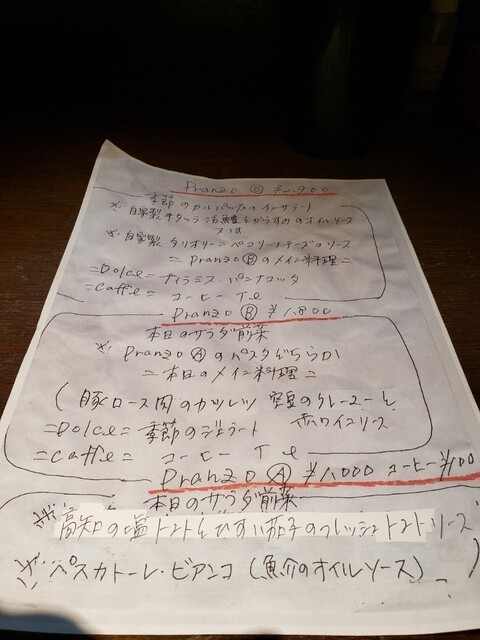 Pranzo Ⓒ ¥2,900
季節のカルパッチョのインサラート
※自家製キタッラ 活 をからすみのオイルソース
又は
※自家製タリオリーニ ペコリーノチーズのソース
= Pranzo Ⓑ のメイン料理 =
=Dolce= ティラミス・パンナコッタ
=Caffe= コーヒー Te
Pranzo Ⓑ ¥1,800
本日のサラダ前菜
※ Pranzo Ⓐ のパスタどちらか
= 本日のメイン料理 =
(豚ロース肉のカツレツ 空豆のクレーマーと
赤ワインソース
=Dolce= 季節のジェラート
=Caffe= コーヒー Te
Pranzo Ⓐ ¥1,000 コーヒー¥100
本日のサラダ前菜
※高知の塩トマトとひすい茄子のフレッシュトマトソース
※ペスカトーレ・ビアンコ(魚介のオイルソース)